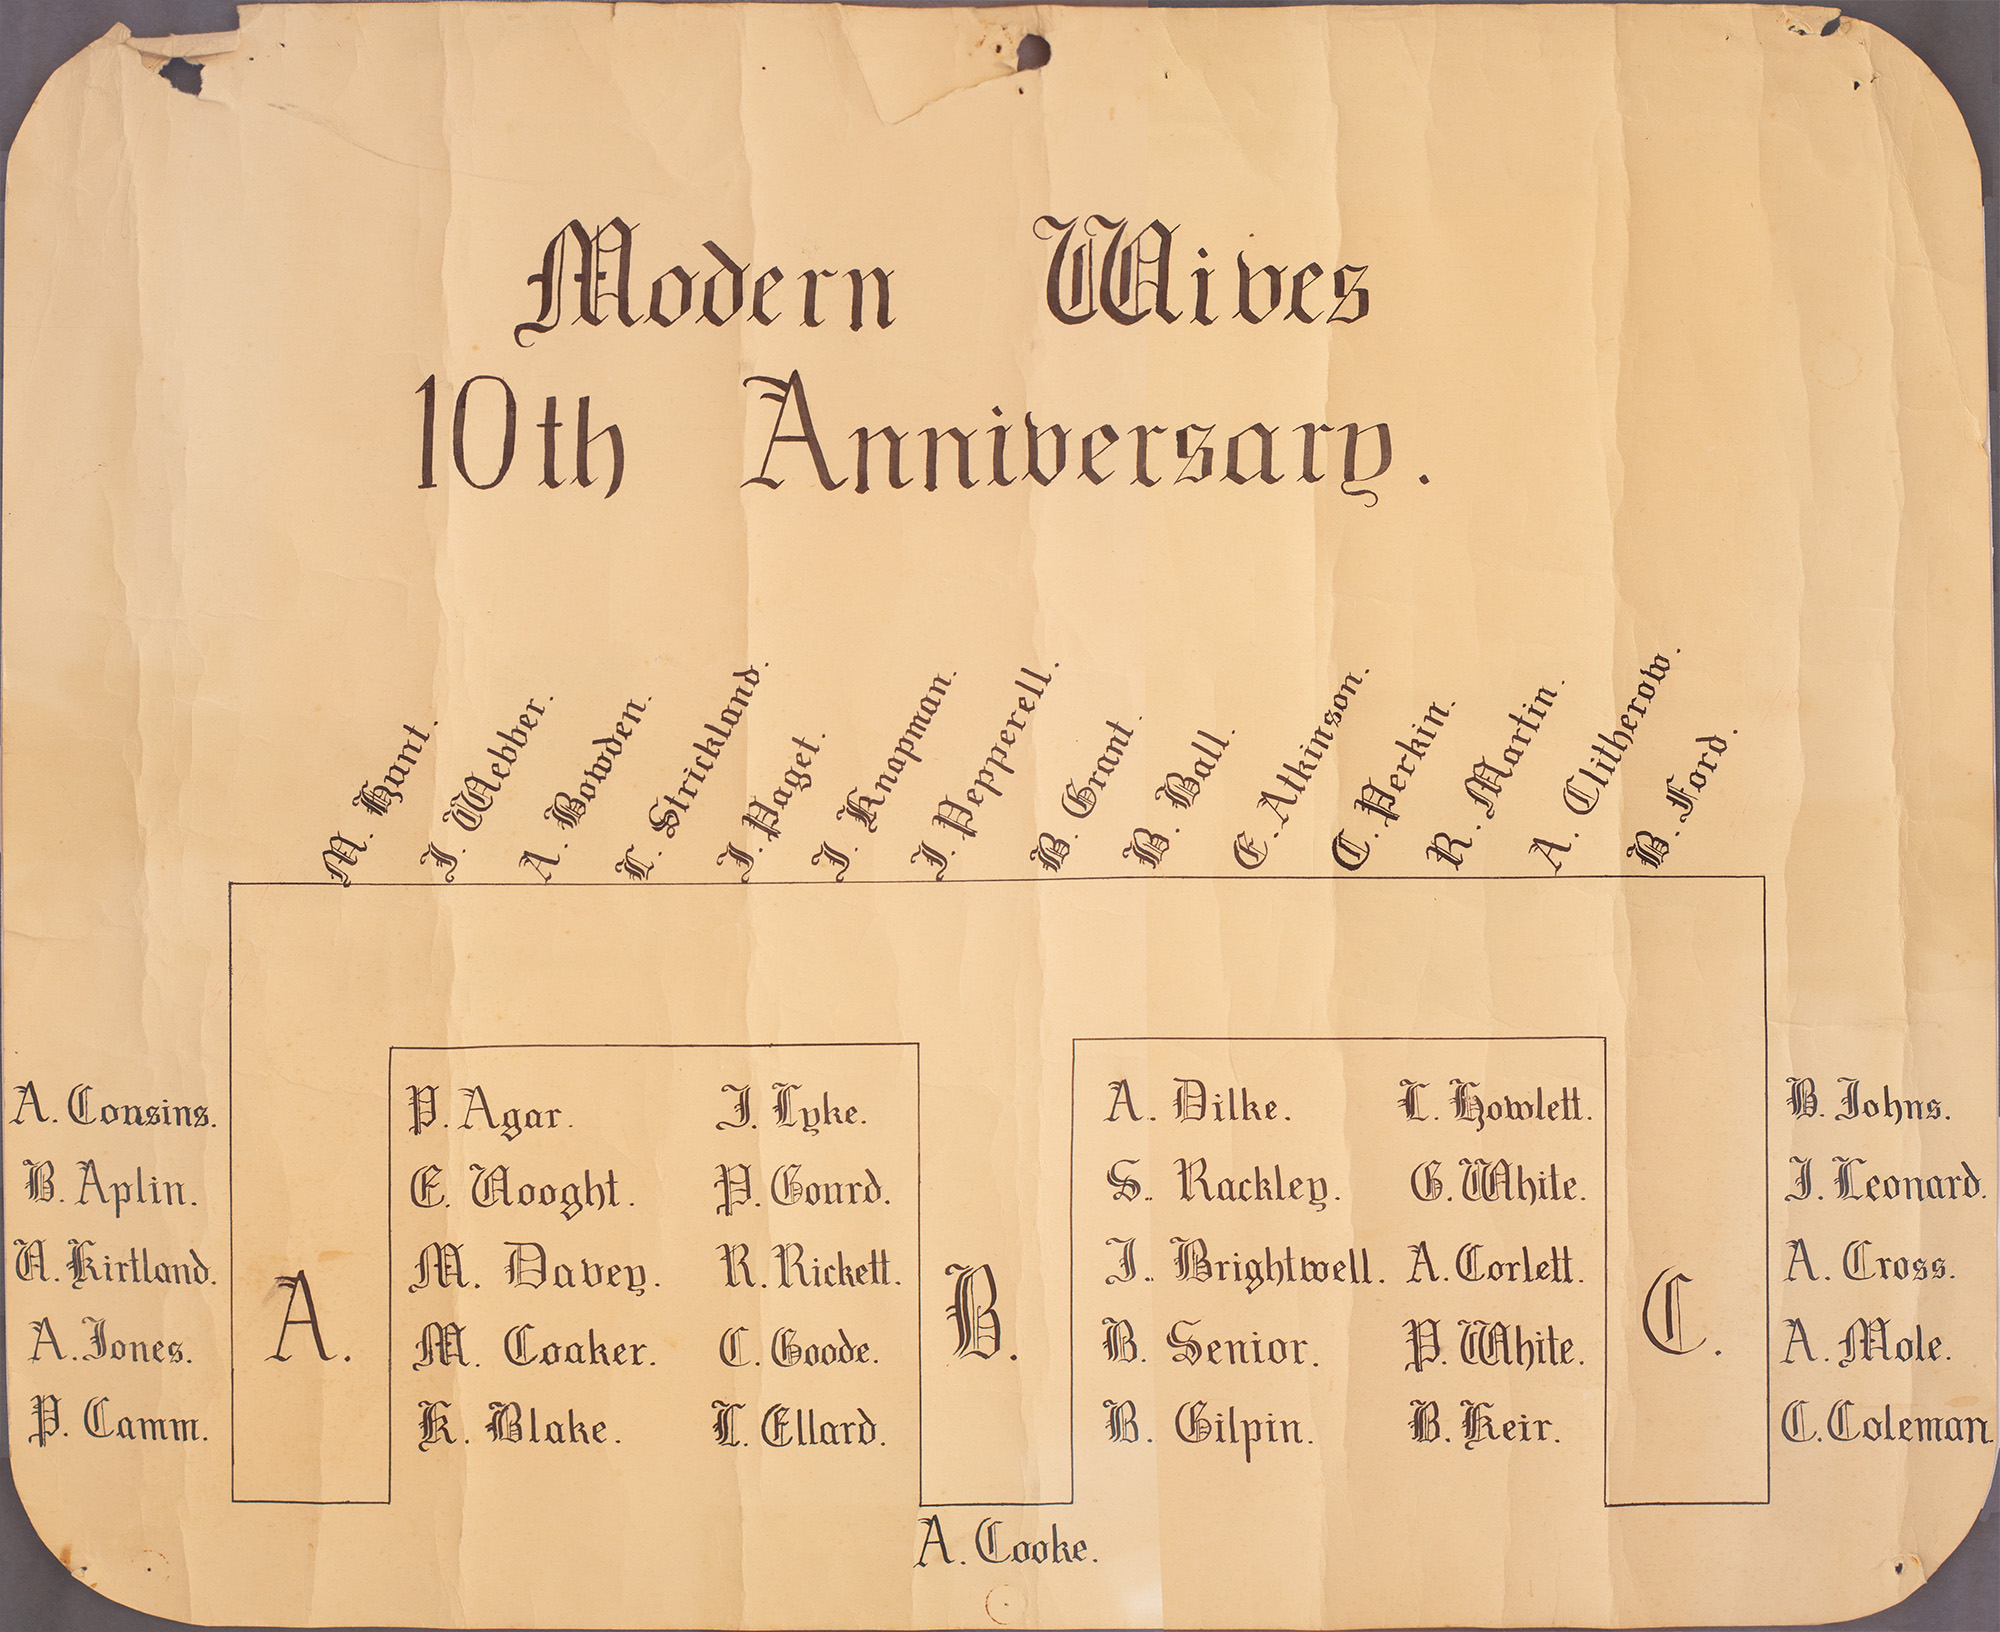 Modern Wives
10th Anniversary.
M. Hunt.
J. Webber.
A. Bowden.
L. Strickland.
J. Paget.
J. Knapman.
J. Pepperell.
B. Grant.
B. Ball.
E. Atkinson.
C. Perkin.
R. Martin.
A. Clitherow.
B. Ford.
A. Cousins.
B. Aplin.
U. Kirtland.
A. Jones.
P. Camm.
A.
P. Agar.
E. Uooght.
M. Davey.
M. Coaker.
K. Blake.
J. Lyke.
P. Gourd.
R. Rickett.
C. Goode.
L. Ellard.
B.
A. Dilke.
S. Rackley.
J. Brightwell.
B. Senior.
B. Gilpin.
L. Howlett.
G. White.
A. Corlett.
P. White.
B. Keir.
C.
B. Johns.
J. Leonard.
A. Cross.
A. Mole.
C. Coleman.
A. Cooke.